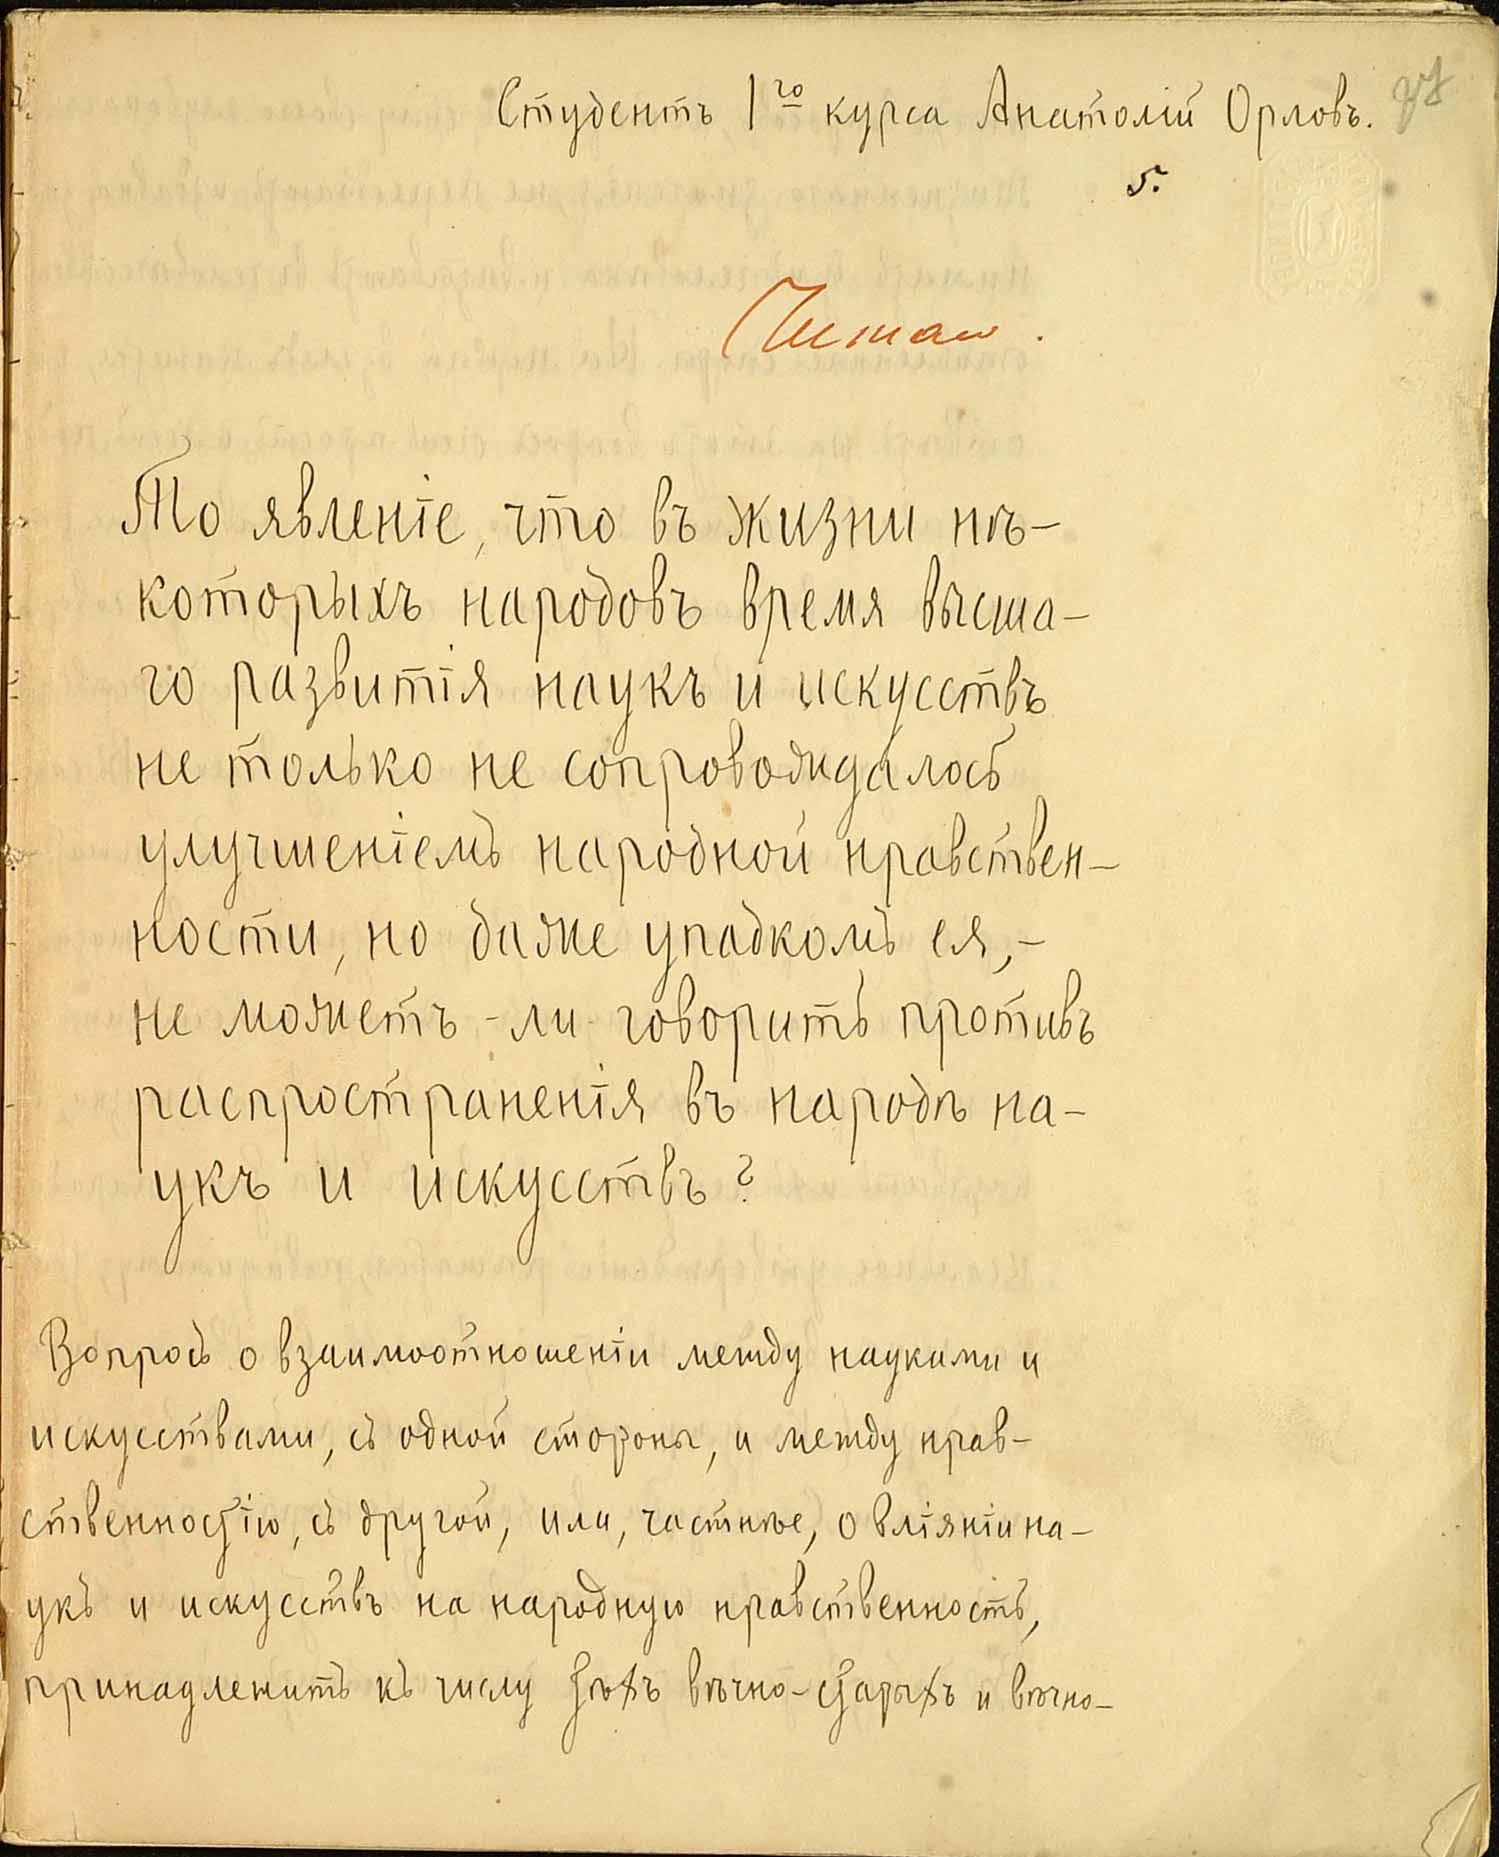 Студентъ 1го курса Анатолій Орловъ.
5.
Читалъ.
То явленіе, что въ жизни нѣ-
которыхъ народовъ время высша-
го развитія наукъ и искусствъ
не только не сопровождалось
улучшеніемъ народной нравствен-
ности, но даже упадкомъ ея,-
не можетъ-ли говорить противъ
распространенія въ народѣ на-
укъ и искусствъ?
Вопросъ о взаимоотношеніи между науками и
искусствами, съ одной стороны, и между нрав-
ственностію, съ другой, или, частнѣе, о вліяніи на-
укъ и искусствъ на народную нравственность,
принадлежитъ къ числу тѣхъ вѣчно-старыхъ и вѣчно-